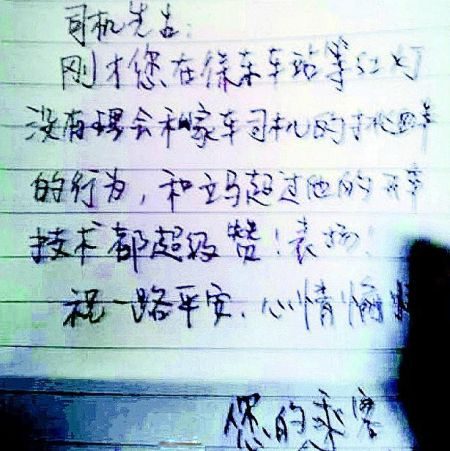 司机先生：
刚才您在徐东车站等红灯
没有理会私家车司机的挑衅
的行为，和立马超过他的开车
技术都超级赞！表扬！
祝一路平安、心情愉
您的乘客